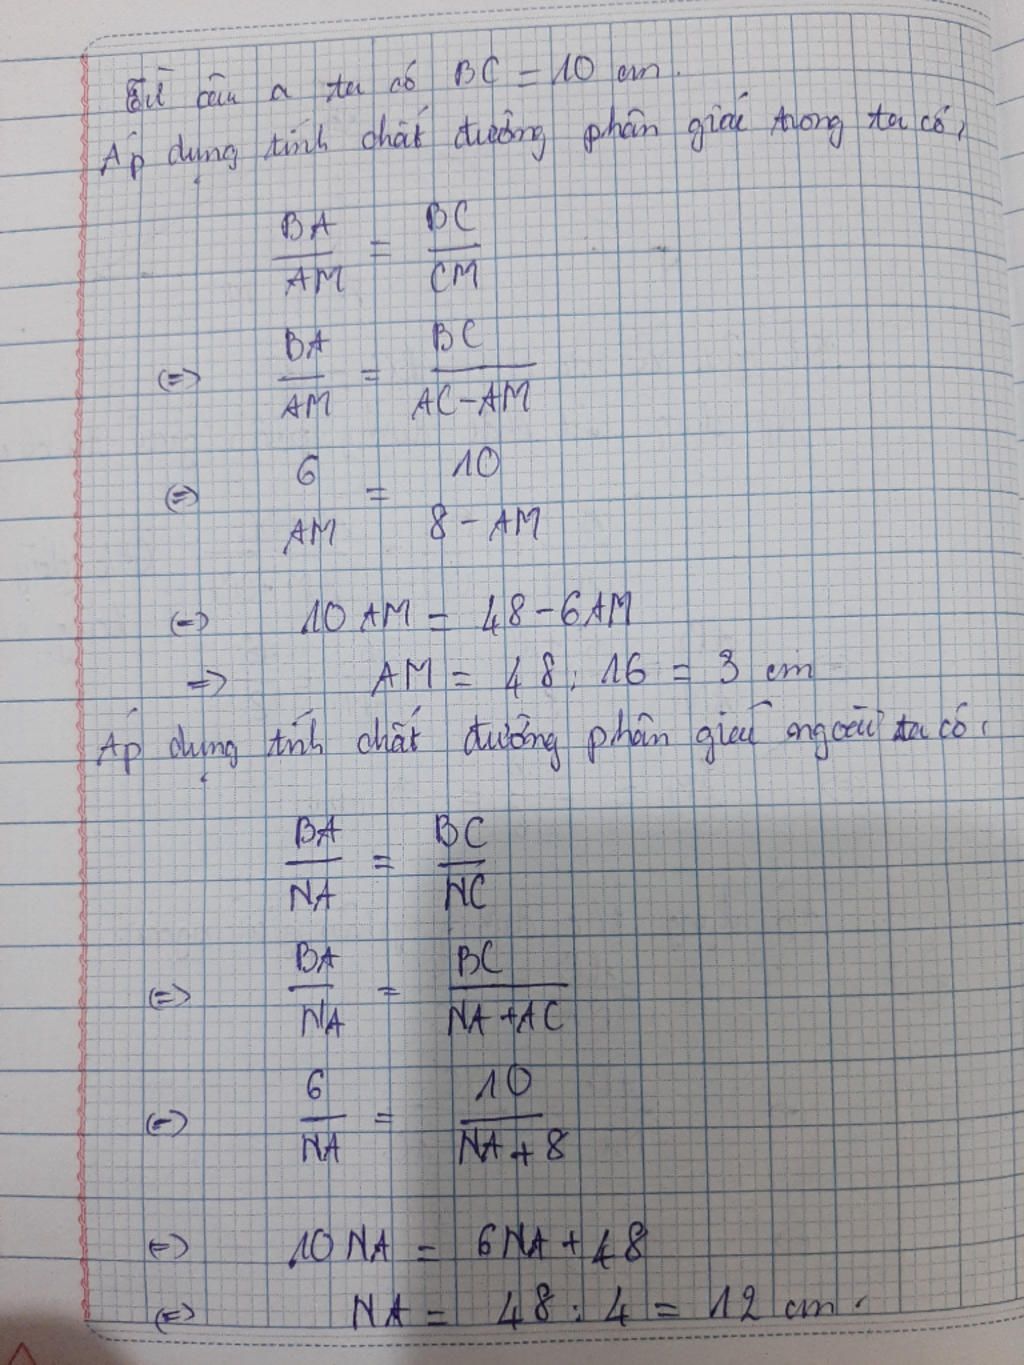 Từ câu a ta có BC = 10 cm.
Áp dụng tính chất đường phân giác trong ta có:
BA/AM = BC/CM
(=) BA/AM = BC/AC-AM
(=) 6/AM = 10/8-AM
(=) 10 AM = 48-6AM
=> AM = 48 : 16 = 3 cm
Áp dụng tính chất đường phân giác ngoài ta có:
BA/NA = BC/NC
(=) BA/NA = BC/NA+AC
(=) 6/NA = 10/NA+8
(=) 10 NA = 6NA + 48
(=) NA = 48 : 4 = 12 cm.